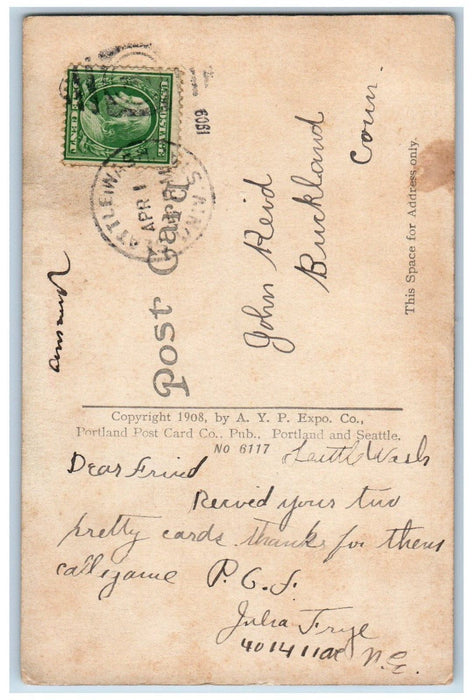 1909
SEATTLE, WASH.
APR 1
Post Card
John Reid
Buckland
Conn.
This Space for Address only.
Copyright 1908, by A. Y. P. Expo. Co.,
Portland Post Card Co., Pub., Portland and Seattle.
No 6117
Seattle Wash
Dear Friend
Recived your two
pretty cards thanks for them
call again
P. C. F.
Julia Frye
4014 11 ave N.E.